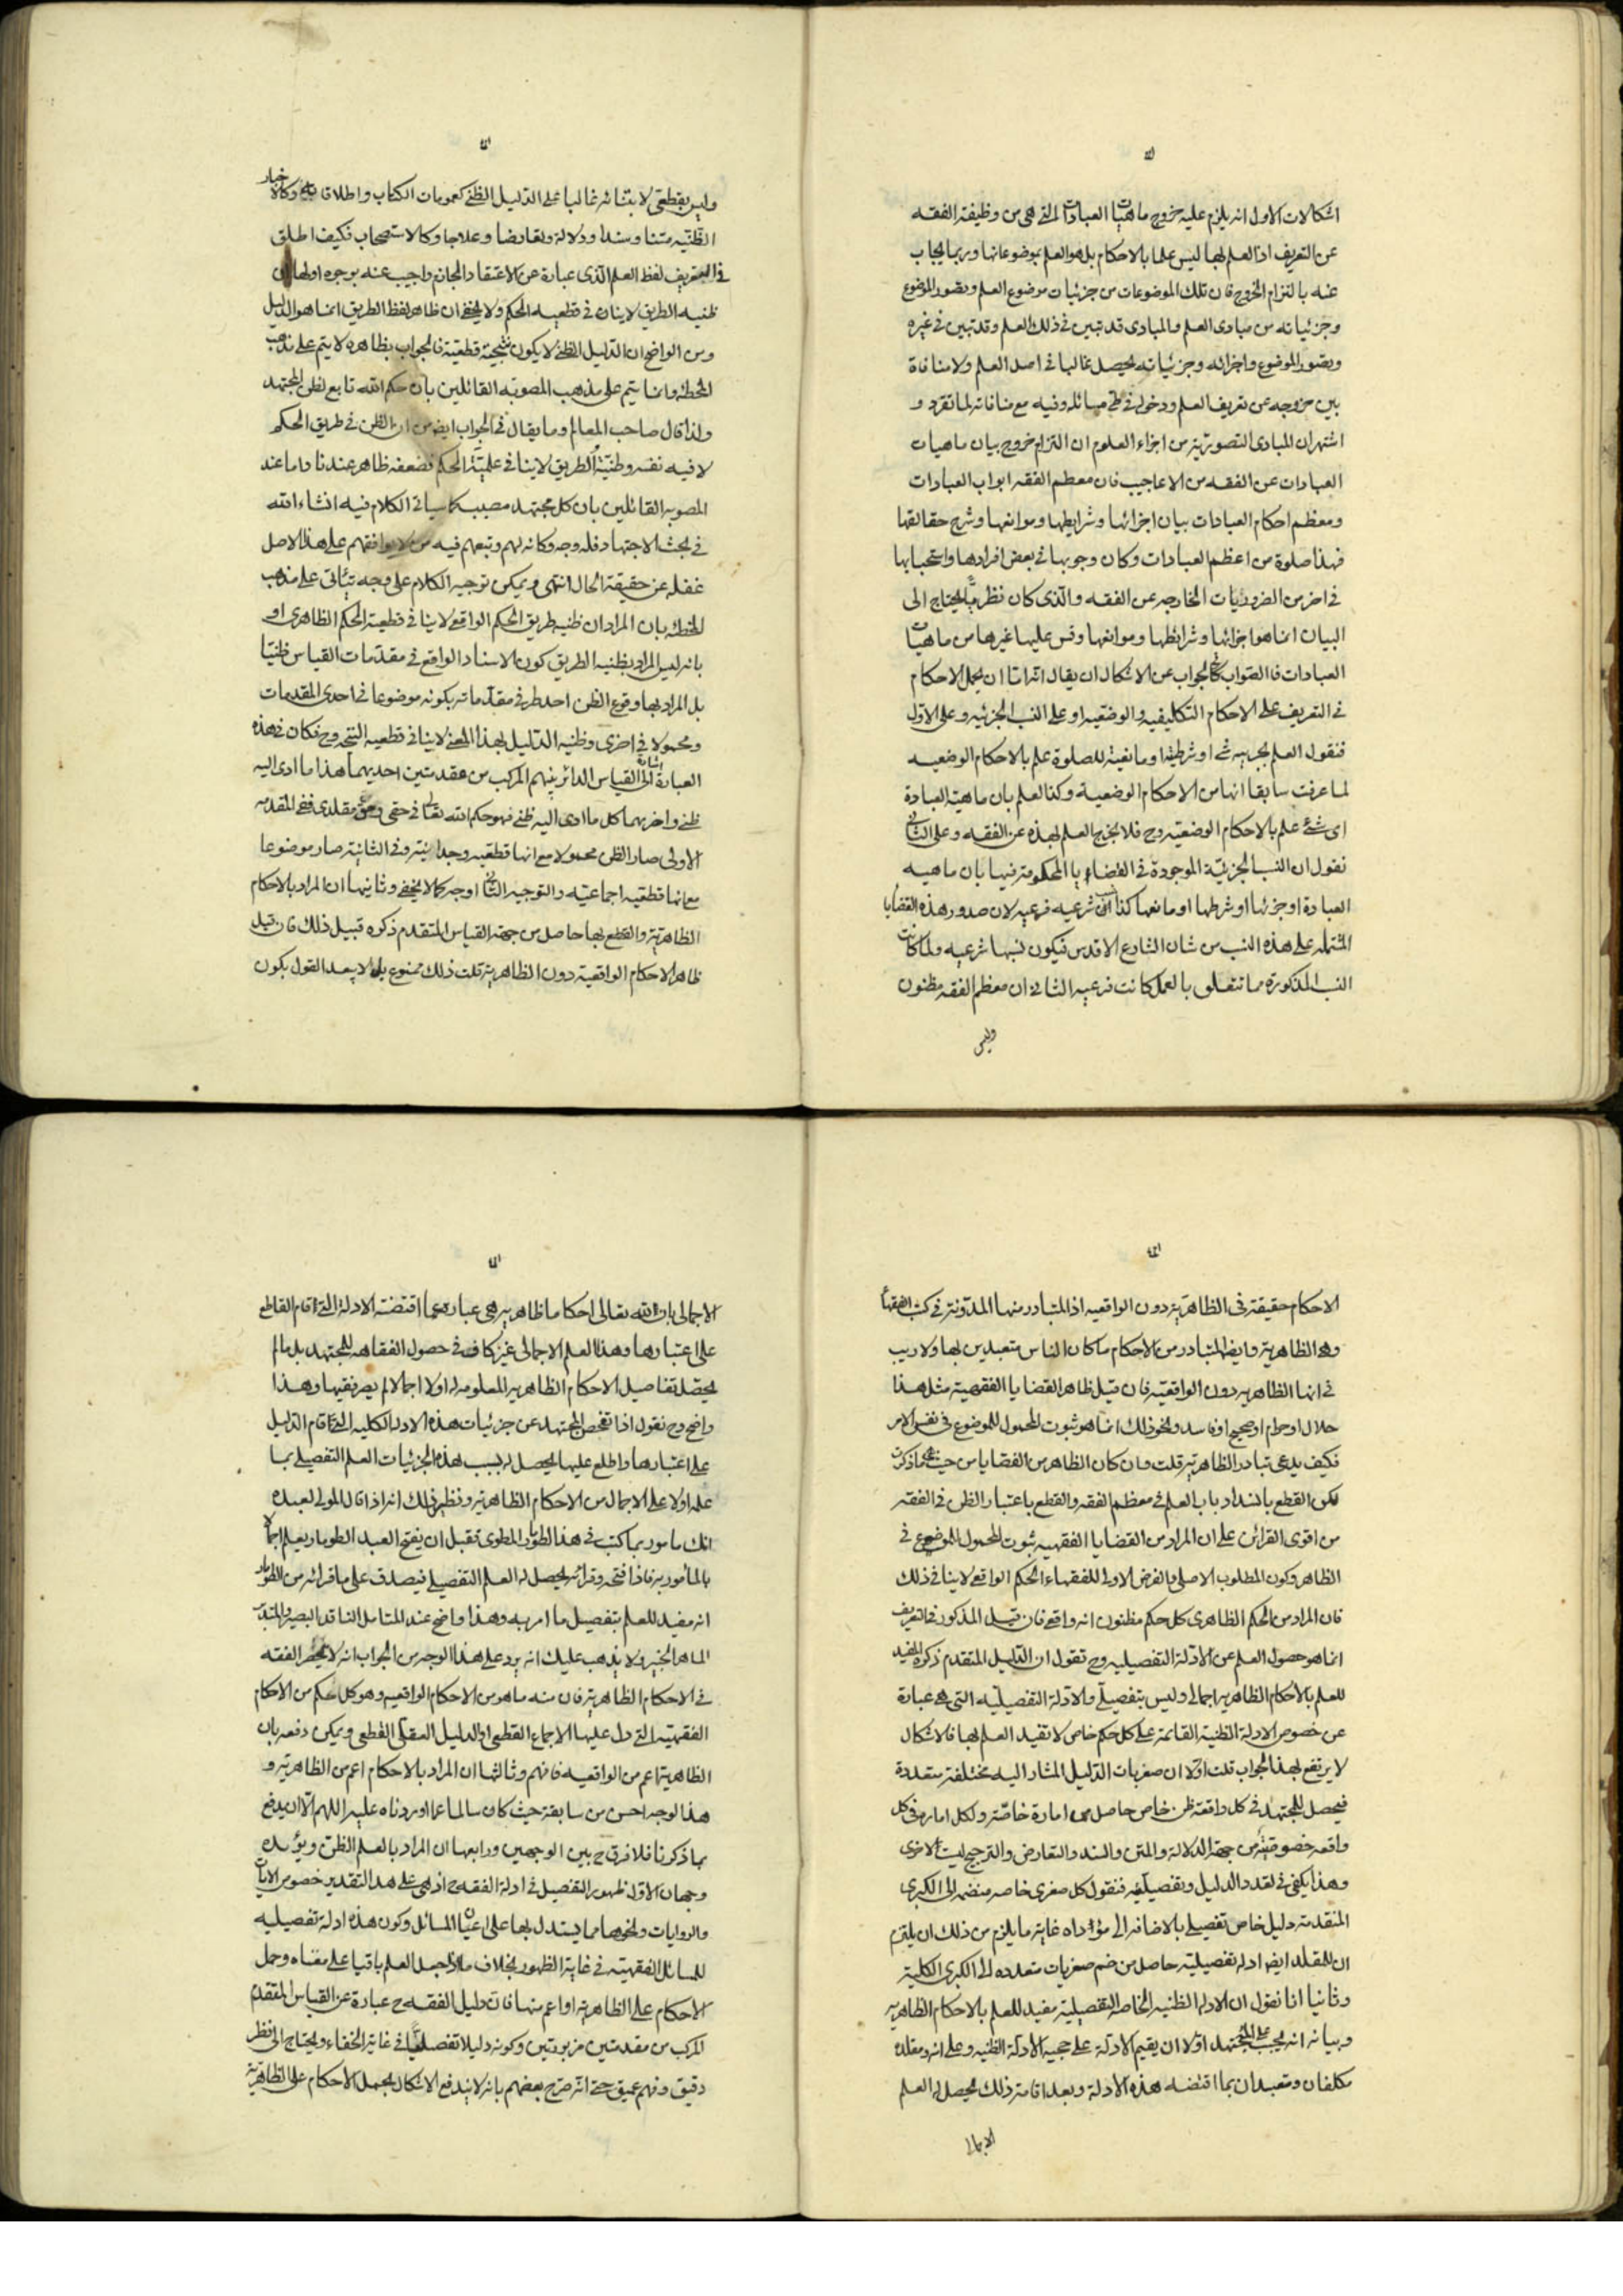 اشكالات الاول انه يلزم عليه خروج ماهيات العبادات التى هى من وظيفة الفقه
عن التعريف اذ العلم بها ليس علما بالاحكام بل هو العلم بموضوعاتها وربما يجاب
عنه بالتزام الخروج فان تلك الموضوعات من جزئيات موضوع العلم وتصور الموضوع
وجزئياته من مبادى العلم والمبادى قد تبين فى ذلك العلم وقد تبين فى غيره
وتصور الموضوع واجزائه وجزئياته يحصل غالبا فى اصل العلم ولا منافاة
بين خروجه عن تعريف العلم ودخوله فى طى مسائله وفيه مع منافاته لما تقرر و
اشتهر ان المبادى التصورية من اجزاء العلوم ان التزام خروج بيان ماهيات
العبادات عن الفقه من الاعاجيب فان معظم الفقه ابواب العبادات
ومعظم احكام العبادات بيان اجزائها وشرايطها وموانعها وشرح حقائقها
فهذا صلوة من اعظم العبادات وكان وجوبها فى بعض افرادها واستحبابها
فى اخر من الضروريات الخارجه عن الفقه والذى كان نظريا يحتاج الى
البيان انما هو اجزائها وشرائطها وموانعها وقس عليها غيرها من ماهيات
العبادات فالصواب فى الجواب عن الاشكال ان يقال انه اما ان يحمل الاحكام
فى التعريف على الاحكام التكليفيه والوضعيه او على النسب الجزئيه وعلى الاول
فنقول العلم بجزئيه شئ او شرطيته او مانعيته للصلوة علم بالاحكام الوضعيه
لما عرفت سابقا انها من الاحكام الوضعية وكذا العلم بان ماهية العبادة
اى شئ علم بالاحكام الوضعيه وح فلا يخرج العلم بهذه عن الفقه وعلى الثانى
نقول ان النسب الجزئية الموجودة فى القضايا المحكومة فيها بان ماهيه
العبادة او جزئها او شرطها او مانعها كذا شرعيه فرعيه لان صدور هذه القضايا
المشتمله على هذه النسب من شان الشارع الاقدس فيكون نسبها شرعيه ولما كانت
النسب المذكورة مما تتعلق بالعمل كانت فرعيه الثانى ان معظم الفقه مظنون
وليس
وليس بقطعى لابتنائه غالبا على الدليل الظنى كعمومات الكتاب واطلاقاته وكالاخبار
الظنيه متنا وسندا ودلالة وتعارضا وعلاجا وكالاستصحاب فكيف اطلق
فى التعريف لفظ العلم الذى عبارة عن الاعتقاد الجازم واجيب عنه بوجوه اولها ان
ظنيه الطريق لا ينافى قطعيه الحكم ولا يخفى ان ظاهر لفظ الطريق انما هو الدليل
ومن الواضح ان الدليل الظنى لا يكون نتيجته قطعية فالجواب بظاهره لا يتم على مذهب
المخطئه وانما يتم على مذهب المصوبه القائلين بان حكم الله تابع لظن المجتهد
ولذا قال صاحب المعالم وما يقال فى الجواب ايضا من ان الظن فى طريق الحكم
لا فيه نفسه وظنية الطريق لا ينافى علمية الحكم فضعفه ظاهر عندنا واما عند
المصوبه القائلين بان كل مجتهد مصيب كما سياتى الكلام فيه انشاء الله
فى بحث الاجتهاد فله وجه وكانه لهم وتبعهم فيه من لا يوافقهم على هذا الاصل
غفله عن حقيقة الحال انتهى ويمكن توجيه الكلام على وجه يتأتى على مذهب
المخطئه بان المراد ان ظنيه طريق الحكم الواقعى لا ينافى قطعية الحكم الظاهرى او
بانه ليس المراد بظنيه الطريق كون الاسناد الواقع فى مقدمات القياس ظنيا
بل المراد بها وقوع الظن احد طرفى مقدماته بكونه موضوعا فى احدى المقدمات
ومحمولا فى اخرى وظنيه الدليل بهذا المعنى لا ينافى قطعيه النتيجه وح فكان فى هذه
العبارة اشارة الى القياس الدائر بينهم المركب من مقدمتين احديهما هذا ما ادى اليه
ظنى واخريهما كل ما ادى اليه ظنى فهو حكم الله تعالى فى حقى وحق مقلدى ففى المقدمه
الاولى صار الظن محمولا مع انها قطعيه وجدانية وفى الثانية صار موضوعا
مع انها قطعيه اجماعيه والتوجيه الثانى اوجه كما لا يخفى وثانيها ان المراد بالاحكام
الظاهرية والقطع بها حاصل من جهة القياس المتقدم ذكره قبيل ذلك فان قيل
ظاهر الاحكام الواقعية دون الظاهرية قلت ذلك ممنوع بل لا يبعد القول بكون
الاحكام حقيقة فى الظاهرية دون الواقعيه اذ المتبادر منها المدونة فى كتب الفقهاء
وهى الظاهرية وايضا المتبادر من الاحكام ما كان الناس متعبدين بها ولا ريب
فى انها الظاهريه دون الواقعيه فان قيل ظاهر القضايا الفقهية مثل هذا
حلال او حرام او صحيح او فاسد ونحو ذلك انما هو ثبوت المحمول للموضوع فى نفس الامر
فكيف يدعى تبادر الظاهرية قلت وان كان الظاهر من القضايا من حيث هى ما ذكرت
لكن القطع بانسداد باب العلم فى معظم الفقه والقطع باعتبار الظن فى الفقه
من اقوى القرائن على ان المراد من القضايا الفقهيه ثبوت المحمول للموضوع فى
الظاهر وكون المطلوب الاصلى والغرض الاولى للفقهاء الحكم الواقعى لا ينافى ذلك
فان المراد من الحكم الظاهرى كل حكم مظنون انه واقعى فان قيل المذكور فى التعريف
انما هو حصول العلم عن الادلة التفصيليه وح تقول ان الدليل المتقدم ذكره المفيد
للعلم بالاحكام الظاهريه اجمالى وليس بتفصيلى والادلة التفصيليه التى هى عبارة
عن خصوص الادلة الظنية القائمة على كل حكم خاص لا تفيد العلم بها فالاشكال
لا يرتفع بهذا الجواب قلت اولا ان صغريات الدليل المشار اليه مختلفة متعددة
فيحصل للمجتهد فى كل واقعة ظن خاص حاصل من امارة خاصة ولكل امارة فى كل
واقعه خصوصية من جهة الدلالة والمتن والسند والتعارض والترجيح ليست لاخرى
وهذا يكفى فى تعدد الدليل وتفصيليته فنقول كل صغرى خاصه منضمه الى الكبرى
المتقدمه دليل خاص تفصيلى بالاضافه الى مؤداه غاية ما يلزم من ذلك ان يلتزم
ان للمقلد ايضا ادلة تفصيلية حاصل من ضم صغريات متعدده الى الكبرى الكلية
وثانيا انا نقول ان الادله الظنيه الخاصه التفصيلية مفيد للعلم بالاحكام الظاهريه
وبيانه انه يجب على المجتهد اولا ان يقيم الادلة على حجيه الادلة الظنيه وعلى انه ومقلده
مكلفان ومتعبدان بما اقتضه هذه الادلة وبعد اقامة ذلك يحصل له العلم
الاجمالى
الاجمالى بان لله تعالى احكاما ظاهريه هى عبارة عما اقتضته الادلة التى اقام القاطع
على اعتبارها وهذا العلم الاجمالى غير كاف فى حصول الفقاهه للمجتهد بل ما لم
يحصل تفاصيل الاحكام الظاهريه المعلومه له اولا اجمالا لم يصر فقيها وهذا
واضح وح نقول اذا تفحص المجتهد عن جزئيات هذه الادلة الكليه التى قام الدليل
على اعتبارها واطلع عليها يحصل له بسبب هذه الجزئيات العلم التفصيلى بما
علمه اولا على الاجمال من الاحكام الظاهرية ونظير ذلك انه اذا قال المولى لعبده
انك مامور بما كتب فى هذا الطومار المطوى فقبل ان يفتح العبد الطومار يعلم اجمالا
بالمأمور به فاذا فتحه وقرائه يحصل له العلم التفصيلى فيصدق على ما قرائه من الطومار
انه مفيد للعلم بتفصيل ما امر به وهذا واضح عند المتامل الناقد البصير والمتدبر
الماهر الخبير ولا يذهب عليك انه يرد على هذا الوجه من الجواب انه لا ينحصر الفقه
فى الاحكام الظاهرية فان منه ما هو من الاحكام الواقعيه وهو كل حكم من الاحكام
الفقهيه التى دل عليها الاجماع القطعى او الدليل العقلى القطعى ويمكن دفعه بان
الظاهرية اعم من الواقعيه فافهم وثالثها ان المراد بالاحكام اعم من الظاهرية و
هذا الوجه احسن من سابقة حيث كان سالما عما اوردناه عليه اللهم الا ان يدفع
بما ذكرنا فلا فرق ح بين الوجهين ورابعها ان المراد بالعلم الظن ويؤيده
وجهان الاول ظهور التفصيل فى ادلة الفقه ح اذ هى على هذا التقدير خصوص الايات
والروايات ونحوهما مما يستدل بها على اعيان المسائل وكون هذه ادلة تفصيليه
للمسائل الفقهيه فى غاية الظهور بخلاف ما اذا جعل العلم باقيا على معناه وحمل
الاحكام على الظاهرية او اعم منها فان دليل الفقه ح عبارة عن القياس المتقدم
المركب من مقدمتين مزبورتين وكونه دليلا تفصيليا فى غاية الخفاء ويحتاج الى نظر
دقيق وفهم عميق حتى انه صرح بعضهم بانه لا يندفع الاشكال بحمل الاحكام على الظاهرية